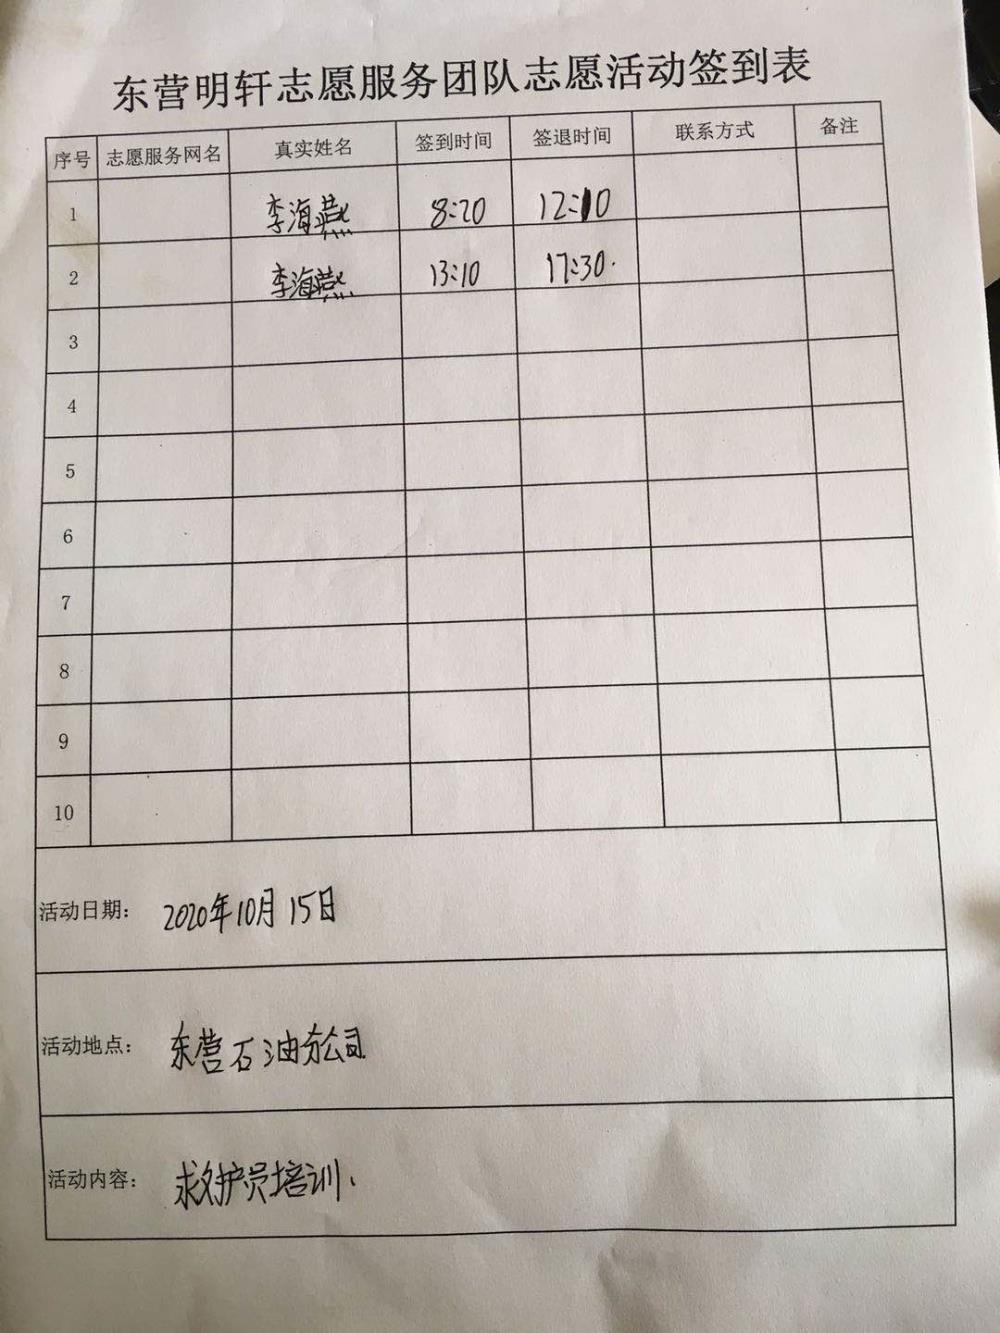 东营明轩志愿服务团队志愿活动签到表
序号 志愿服务网名 真实姓名 签到时间 签退时间 联系方式 备注
1 李海燕 8:20 12:10
2 李海燕 13:10 17:30.
3
4
5
6
7
8
9
10
活动日期: 2020年10月15日
活动地点: 东营石油分公司
活动内容: 救护员培训.